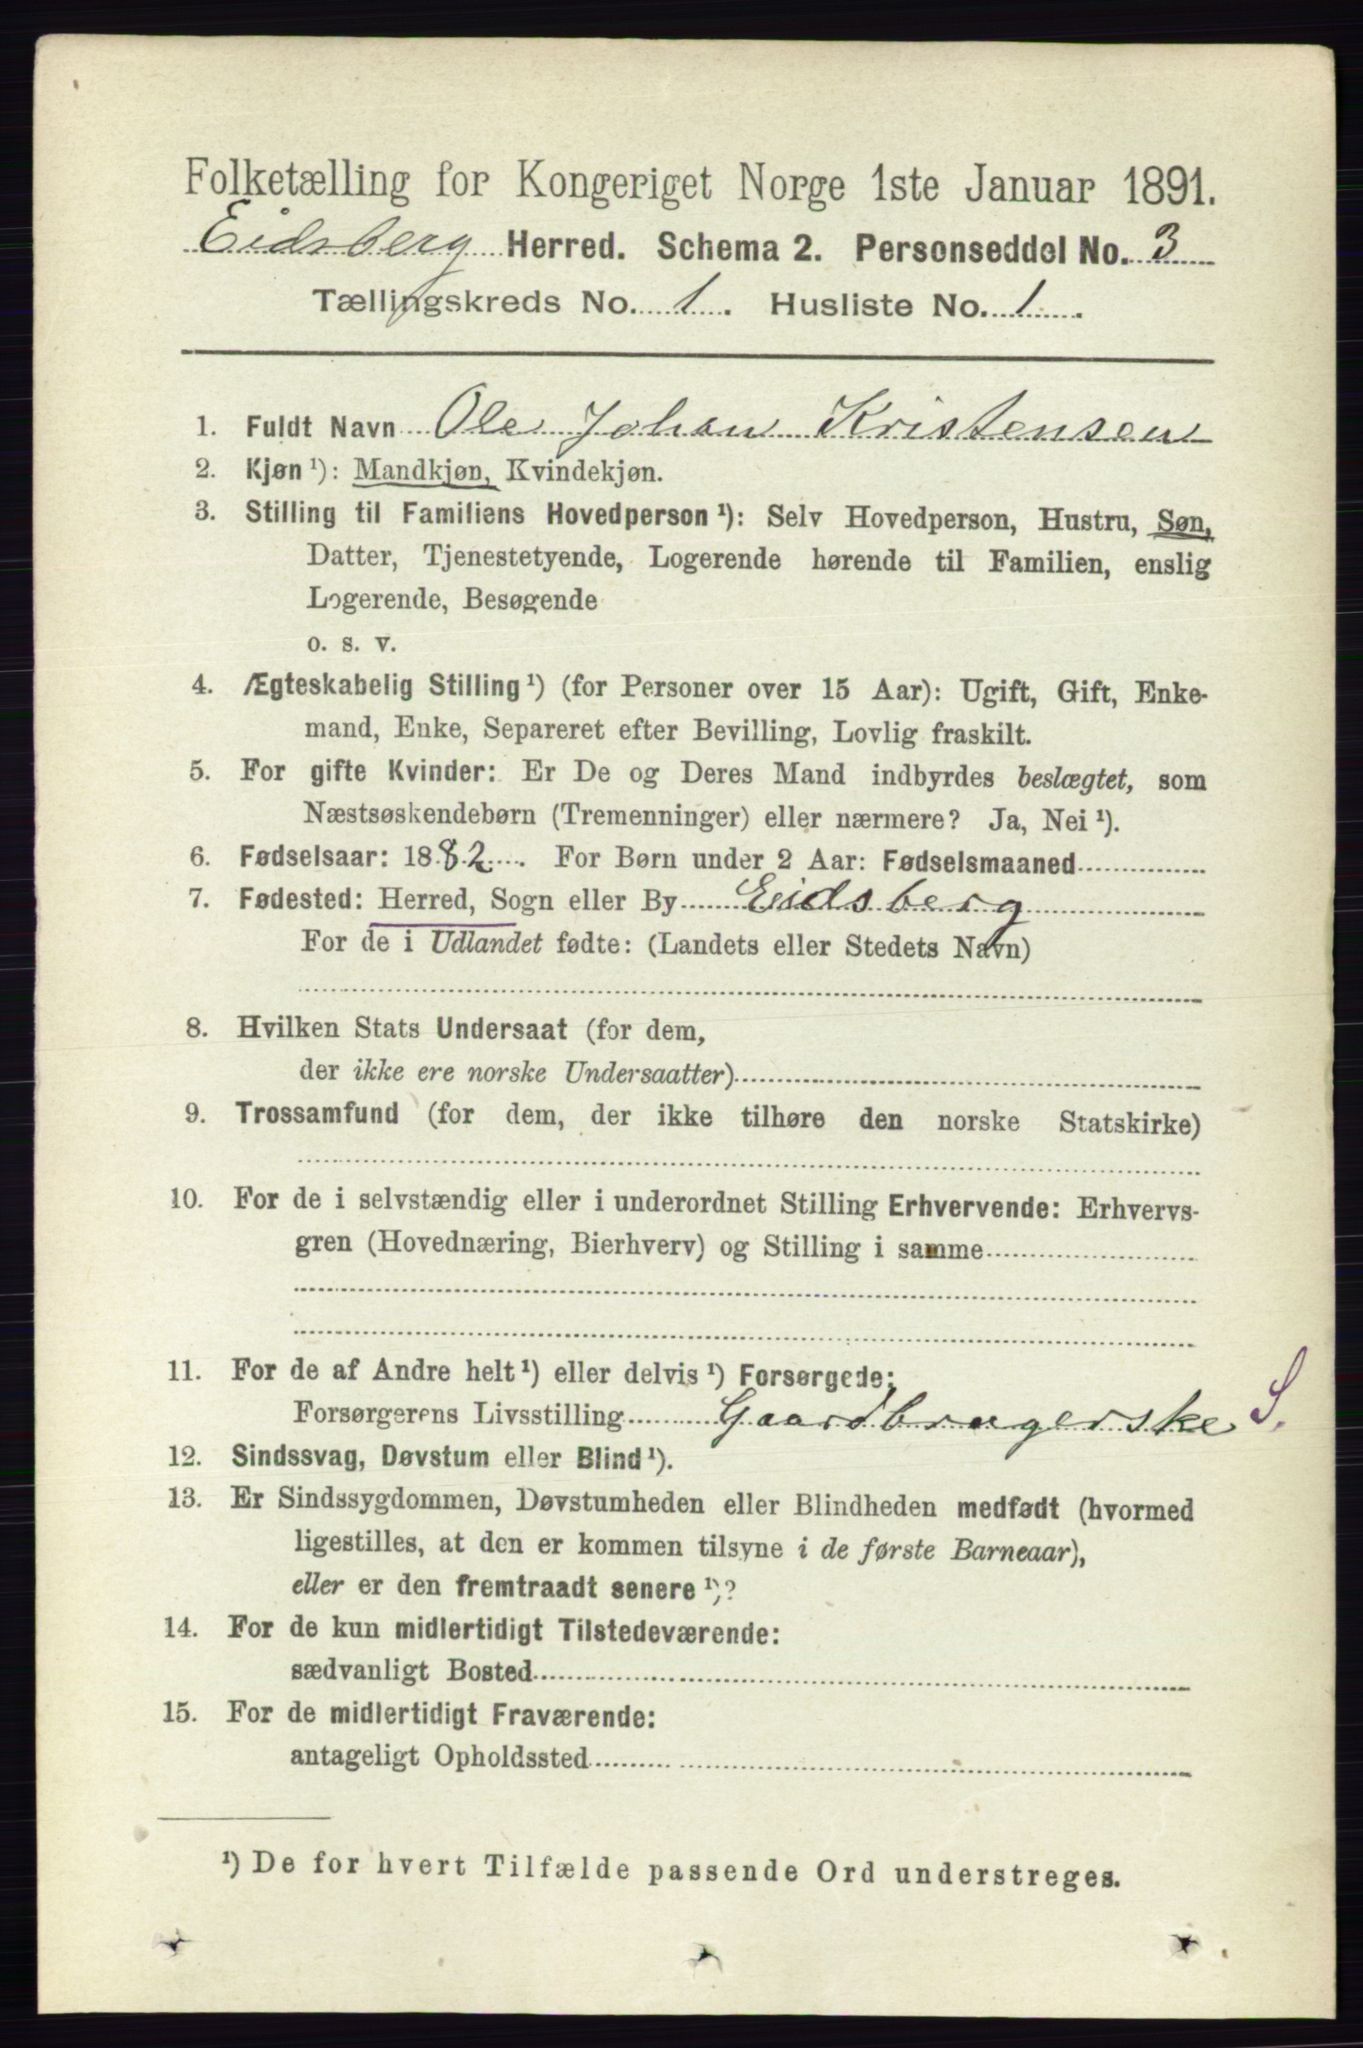 Folketælling for Kongeriget Norge 1ste Januar 1891.
Eidsberg Herred. Schema 2. Personseddel No. 3
Tællingskreds No. 1. Husliste No. 1.
1. Fuldt Navn Ole Johan Kristensen
2. Kjøn¹): Mandkjøn, Kvindekjøn.
3. Stilling til Familiens Hovedperson¹): Selv Hovedperson, Hustru, Søn,
Datter, Tjenestetyende, Logerende hørende til Familien, enslig
Logerende, Besøgende
o. s. v.
4. Ægteskabelig Stilling¹) (for Personer over 15 Aar): Ugift, Gift, Enke-
mand, Enke, Separeret efter Bevilling, Lovlig fraskilt.
5. For gifte Kvinder: Er De og Deres Mand indbyrdes beslægtet, som
Næstsøskendebørn (Tremenninger) eller nærmere? Ja, Nei¹).
6. Fødselsaar: 1882. For Børn under 2 Aar: Fødselsmaaned
7. Fødested: Herred, Sogn eller By Eidsberg
For de i Udlandet fødte: (Landets eller Stedets Navn)
8. Hvilken Stats Undersaat (for dem,
der ikke ere norske Undersaatter)
9. Trossamfund (for dem, der ikke tilhøre den norske Statskirke)
10. For de i selvstændig eller i underordnet Stilling Erhvervende: Erhvervs-
gren (Hovednæring, Bierhverv) og Stilling i samme
11. For de af Andre helt¹) eller delvis¹) Forsørgede:
Forsørgerens Livsstilling Gaardbrugerske S.
12. Sindssvag, Døvstum eller Blind¹).
13. Er Sindssygdommen, Døvstumheden eller Blindheden medfødt (hvormed
ligestilles, at den er kommen tilsyne i de første Barneaar),
eller er den fremtraadt senere¹)?
14. For de kun midlertidigt Tilstedeværende:
sædvanligt Bosted
15. For de midlertidigt Fraværende:
antageligt Opholdssted
¹) De for hvert Tilfælde passende Ord understreges.